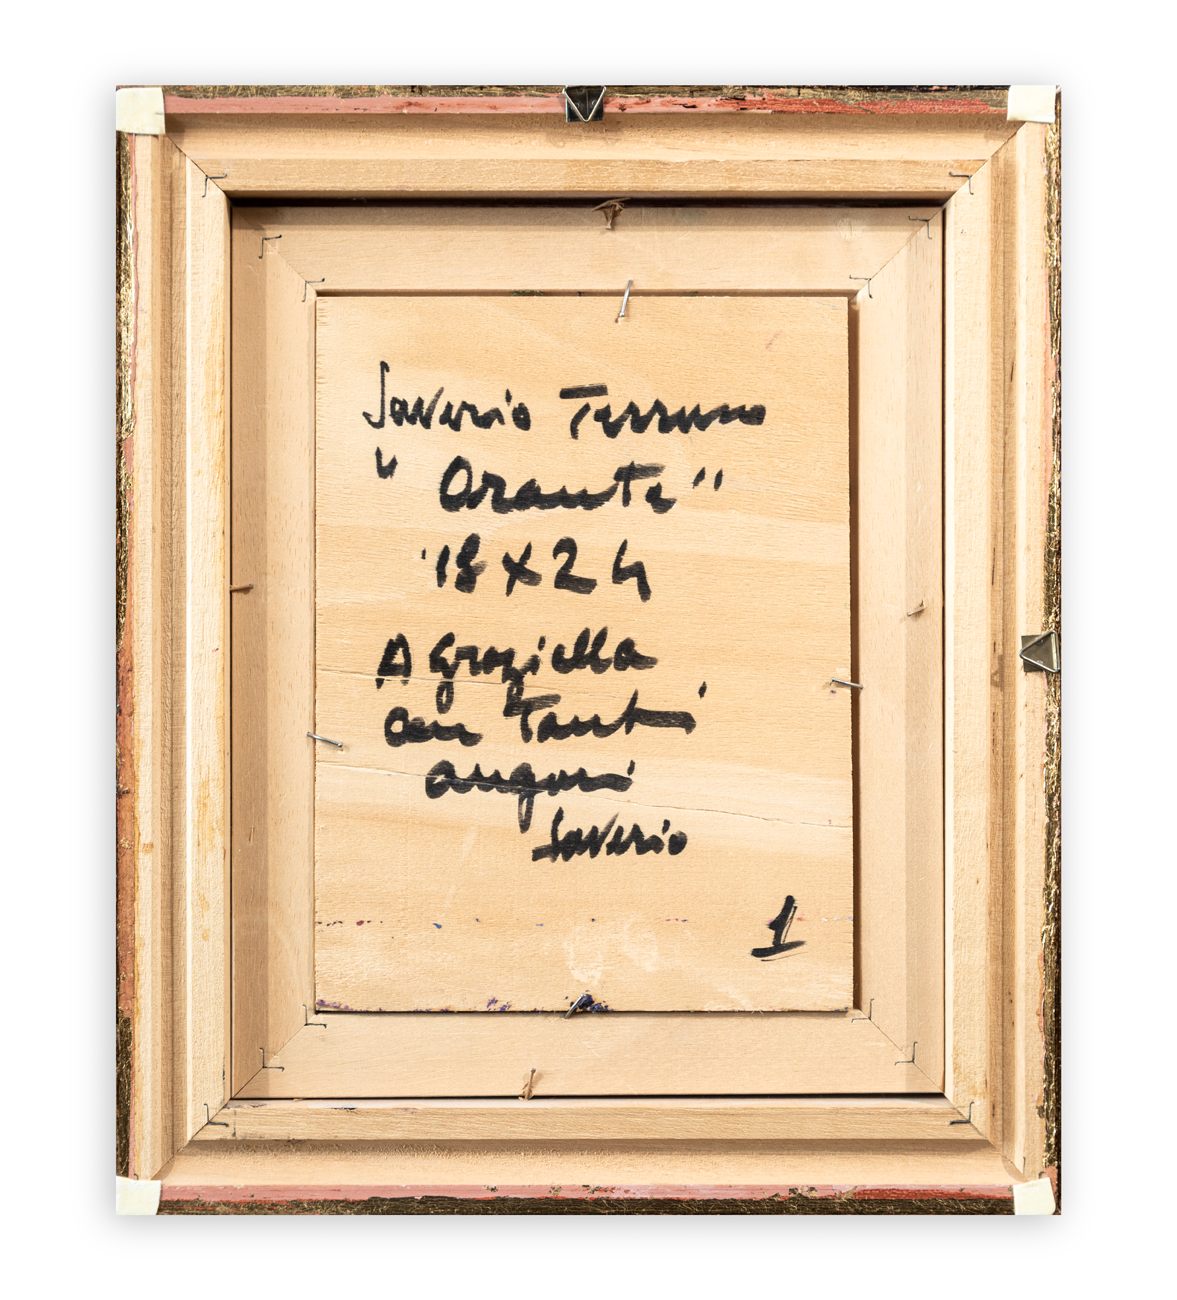 Saverio Terruso
"Orante"
18 x 24
A Graziella
con Tanti
auguri
Saverio
1